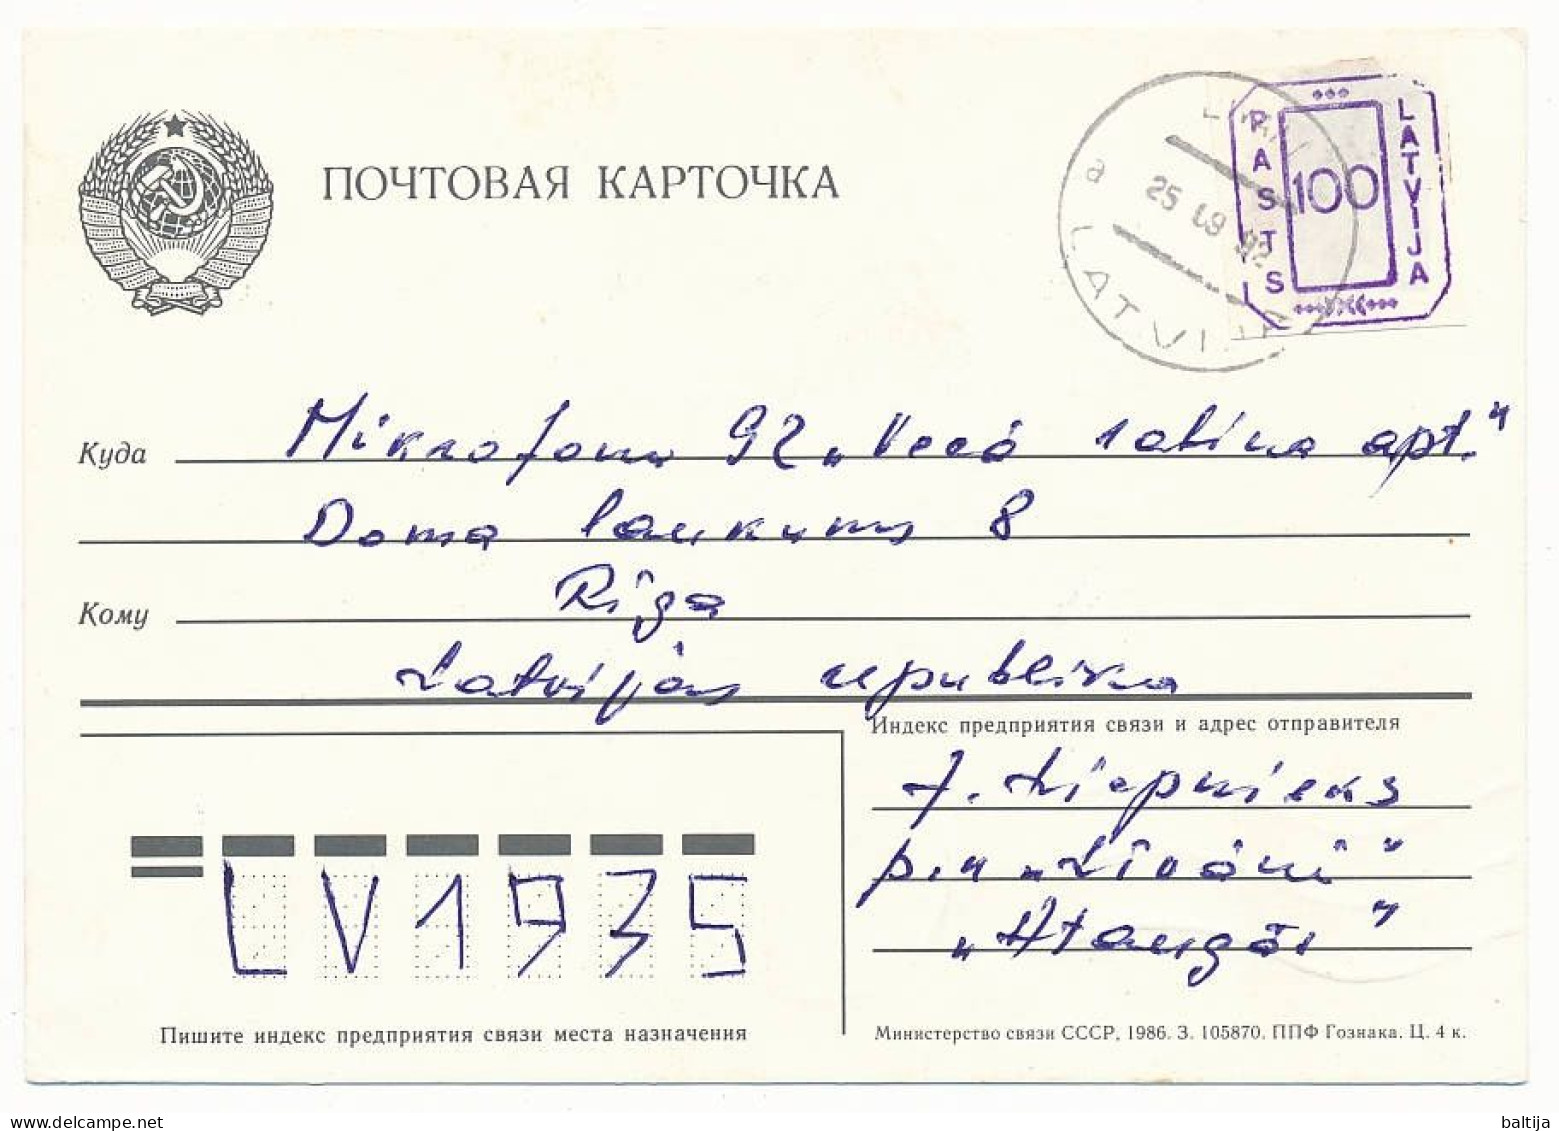 ПОЧТОВАЯ КАРТОЧКА
PASTS 100 LATVIJA
a 25 09 92
LATVIJA
Куда Mikrofons 92 „Vecā ratiņa apt.“
Doma laukums 8
Кому Rīga
Latvijas republika
Индекс предприятия связи и адрес отправителя
J. Liepnieks
p.n „Līvāni“
„Ataugās“
LV1935
Пишите индекс предприятия связи места назначения
Министерство связи СССР, 1986. З. 105870. ППФ Гознака. Ц. 4 к.
baltija